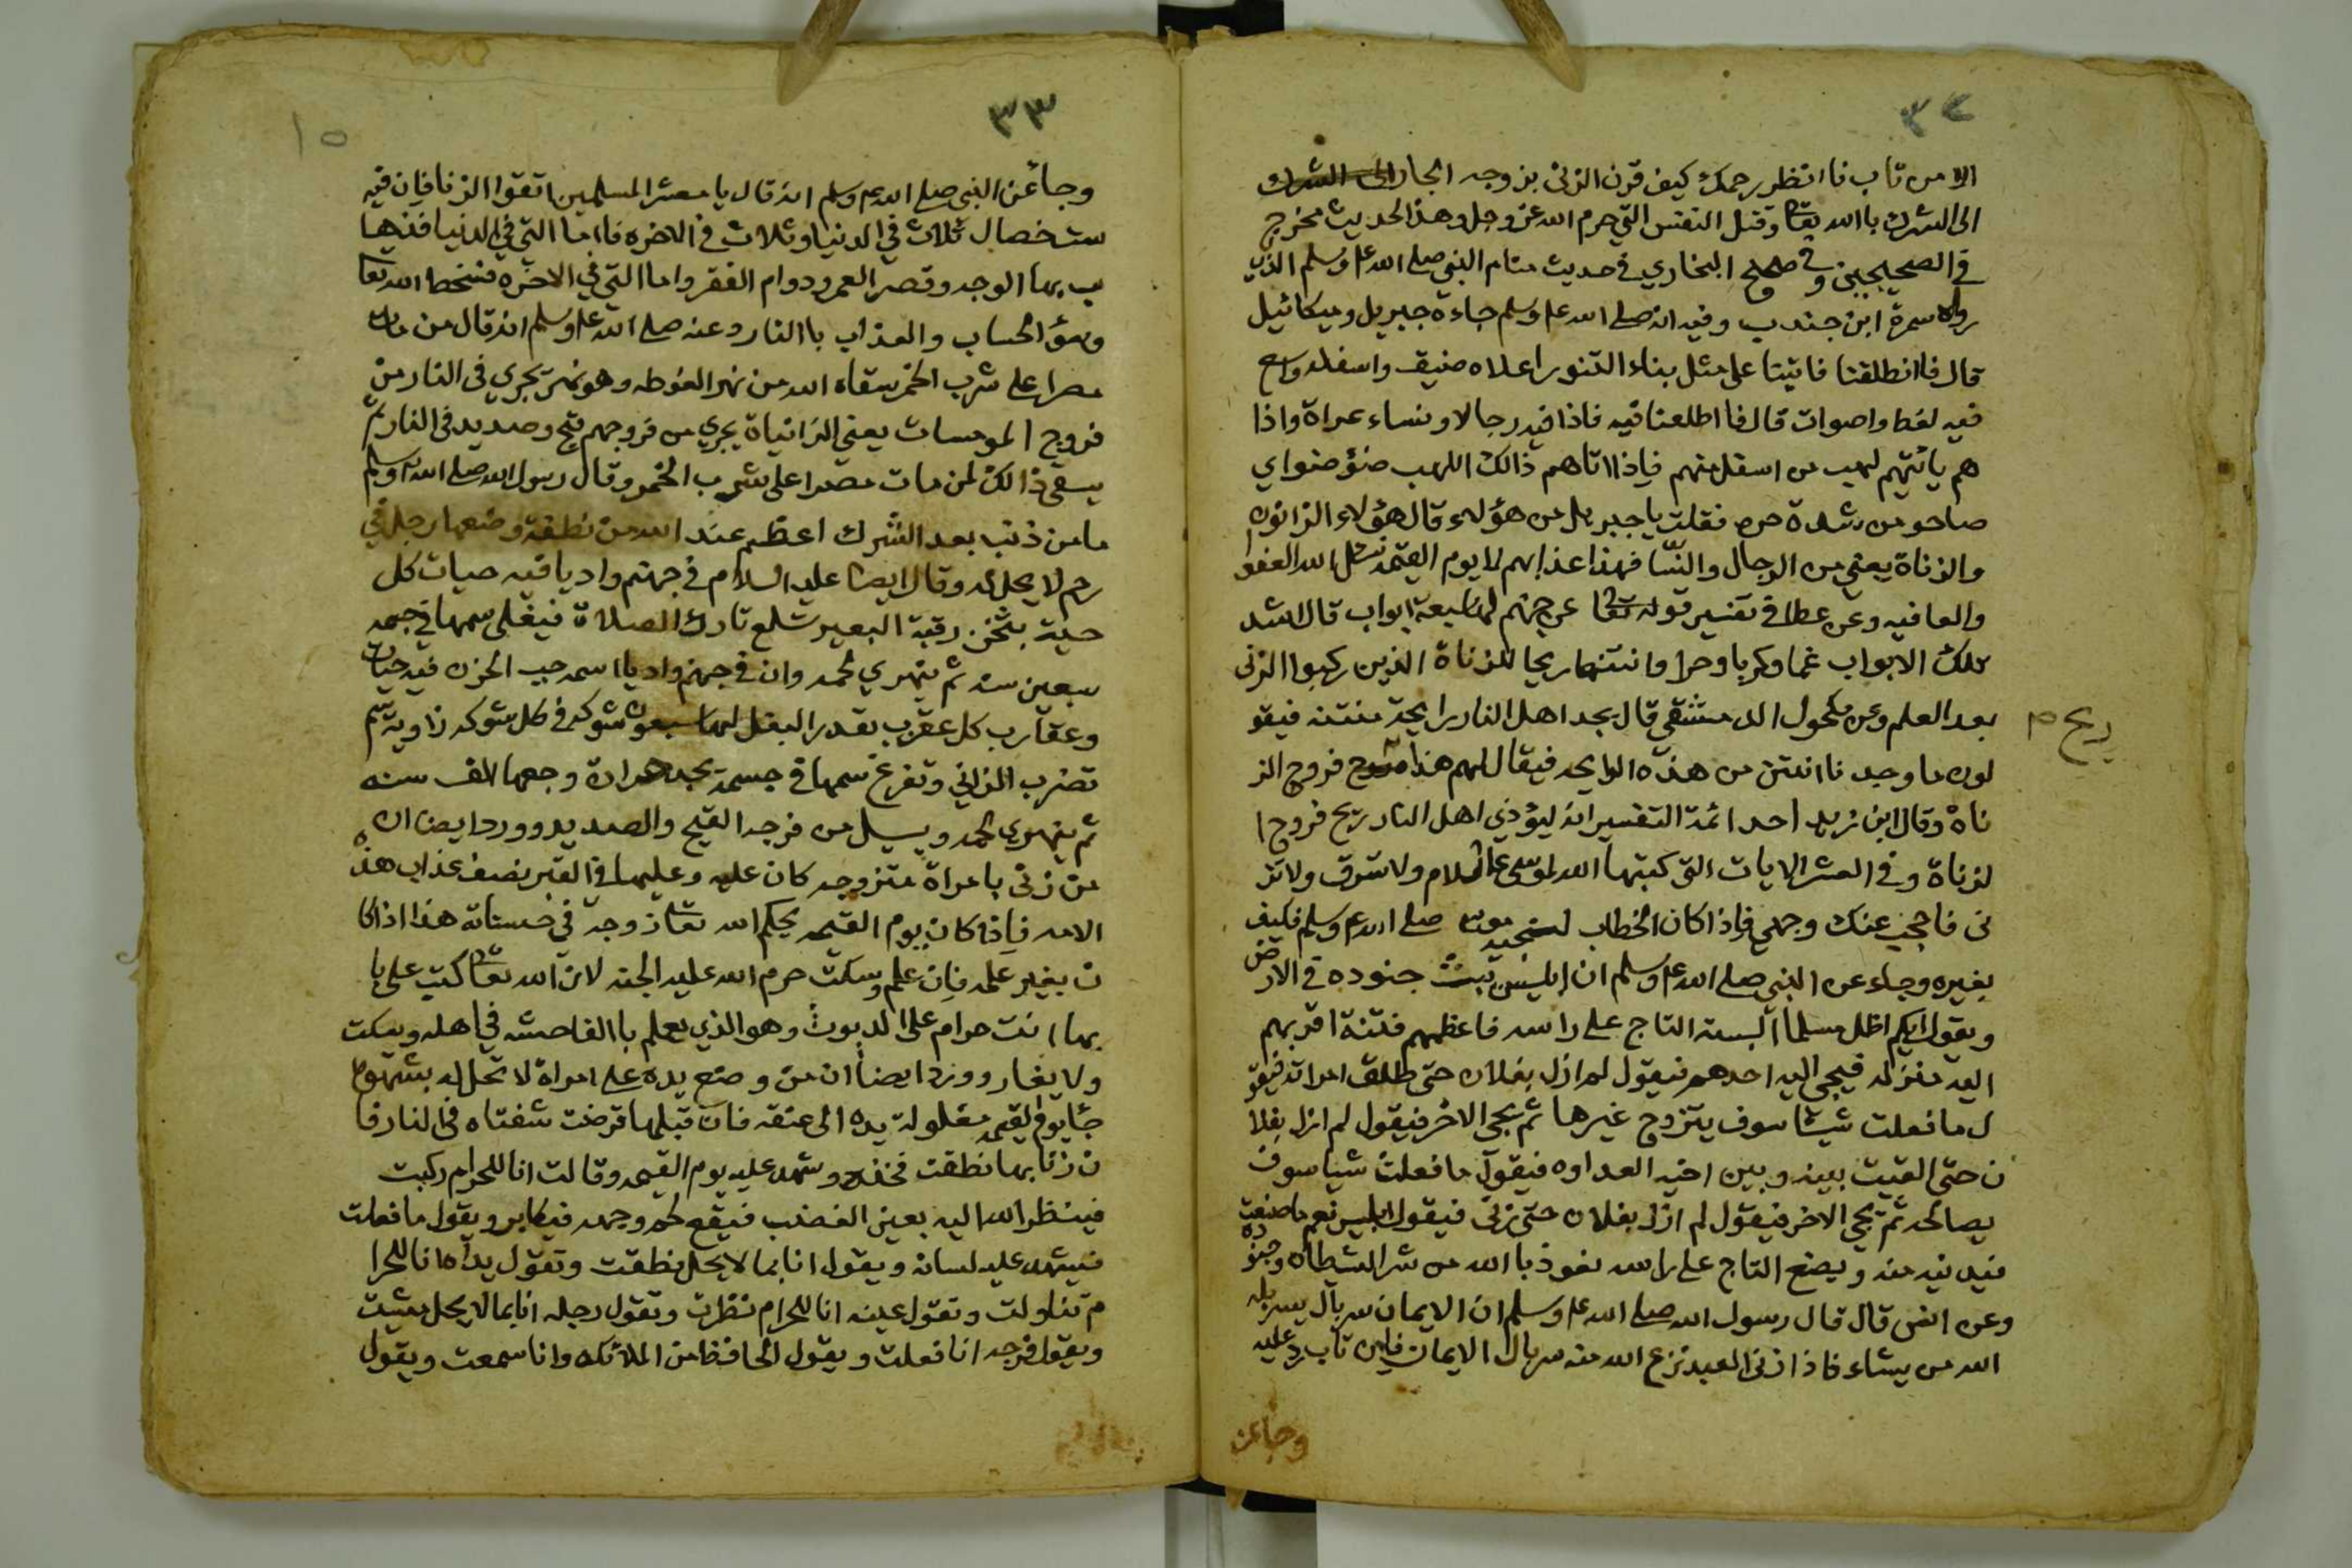 ٣٢
الا من تاب فاانظر رحمك كيف قرن الزنى بزوجه الجار الى الشرك
الى الشرك باالله تعا وقتل النفس التي حرم الله عز وجل وهذا لحديث مخرج
في الصحيحين وفي صحيح البخاري في حديث منام النبي صلى الله علم وسلم الذي
رواه سمرة ابن جندب وفيه انه صلى الله علم وسلم جاءه جبريل وميكائيل
قال فاانطلقنا فاتينا على مثل بناء التنور اعلاه ضيق واسفله واسع
فيه لغط واصوات قال فااطلعنا فيه فاذا فيه رجالا ونساء عراة واذا
هم ياتيهم لهب من اسفل منهم فاذا اتاهم ذالك اللهب ضؤضؤا اي
صاحو من شدة حره فقلت يا جبريل من هؤلاء قال هؤلاء الزانون
والزناة يعني من الرجال والنسا فهذا عذابهم لا يوم القيمه نسئل الله العفو ا
والعافيه وعن عطا في تفسير قوله تعا عن جهنم لها سبعة ابواب قال اشد
تلك الابواب غما وكربا وحرا وانتنها ريحا للزناة الذين ركبوا الزنى
بعد العلم وعن مكحول الدمشقي قال يجد اهل النار رايحة منتنه فيقو
ريح م
لون ما وجدنا انتن من هذه الرايحه فيقال لهم هذا ريح فروج الز
ناة وقال ابن زيد احد ائمة التفسير انه ليؤذي اهل النار ريح فروج ا
لزناة وفي العشر الايات التي كتبها الله لموسى علم السلام ولا تسرق ولا تز
ني فاحجب عنك وجهي فاذا كان الخطاب لنجيه موسى صلى الله علم وسلم فكيف
بغيره وجاء عن النبي صلى الله علم وسلم ان ابليس يبث جنوده في الارض
ويقول ايكم اظل مسلما البسته التاج على راسه فاعظمهم فتنة اقربهم
اليه منزله فيجي اليه احدهم فيقول لم ازل بفلان حتى طلق امراته فيقو
ل ما فعلت شيئا سوف يتزوج غيرها ثم يجي الاخر فيقول لم ازل بفلا
ن حتى القيت بينه وبين اخيه العداوه فيقول ما فعلت شيا سوف
يصالحه ثم يجي الاخر فيقول لم ازل بفلان حتى زنى فيقول ابليس نعم ما صنعت
فيدنيه منه ويضع التاج على راسه نعوذ باالله من شر الشيطان وجنوده
وعن انس قال قال رسول الله صلى الله علم وسلم ان الايمان سربال يسربله
الله من يشاء فاذا زنى العبد نزع الله منه سربال الايمان فاان تاب رد عليه
وجا عن
٣٣
١٥
وجأ عن النبي صلى الله علم وسلم انه قال يا معشر المسلمين اتقوا الزنا فان فيه
ست خصال ثلاث في الدنيا وثلاث في الاخره فااما التي في الدنيا فذها
ب بهاا لوجه وقصر العمر ودوام الفقر واما التي في الاخره فسخط الله تعا
وسؤ الحساب والعذاب باالنار وعنه صلى الله علم وسلم انه قال من مات
مصرا على شرب الخمر سقاه الله من نهر الغوطه وهو نهر يجري في النار من
فروج المومسات يعني الزانياة يجري من فروجهم قيح وصديد في النار ثم
يسقى ذالك لمن مات مصرا على شرب الخمر وقال رسول الله صلى الله علم وسلم
ما من ذنب بعد الشرك اعظم عند الله من نطفة وضعها رجل في
رحم لا يحل له وقال ايضا عليه السلام في جهنم واديا فيه حيات كل
حية بثخن رقبة البعير تلسع تارك الصلاة فيغلى سمها في جسمه
سبعين سنه ثم يتهري لحمه وان في جهنم وادياا سمه جب الحزن فيه حيات
وعقارب كل عقرب بقدر البغل لها سبعون شوكه في كل شوكه زاوية سم
تضرب الزاني وتفرغ سمها في جسمه يجد مرارة وجعها الف سنه
ثم يتهري لحمه ويسيل من فرجه القيح والصديد وورد ايضا ان
من زنى بامراة متزوجه كان عليه وعليها في القبر نصف عذاب هذه
الامه فاذا كان يوم القيمه يحكم الله تعا زوجه في حسناته هذا اذا كا
ن بغير علمه فان علم وسكت حرم الله عليه الجنه لان الله تعا كتب على با
بها انت حرام على الديوث وهو الذي يعلم باالفاحشه في اهله ويسكت
ولا يغار وورد ايضا ان من وضع يده على امراة لا تحل له بشهوة
جأ يوم القيمه مغلولة يده الى عنقه فان قبلها قرضت شفتاه في النار فا
ن زنا بها نطقت فخذه وشهد عليه يوم القيمه وقالت انا للحرام ركبت
فينظر الله اليه بعين الغضب فيقع لحم وجهه فيكابر ويقول ما فعلت
فيشهد عليه لسانه ويقول انا بما لا يحل نطقت وتقول يداه انا للحرا
م تناولت وتقول عينه انا للحرام نظرت وتقول رجله انا بما لا يحل مشيت
ويقول فرجه انا فعلت ويقول الحافظ من الملائكه وانا سمعت ويقول